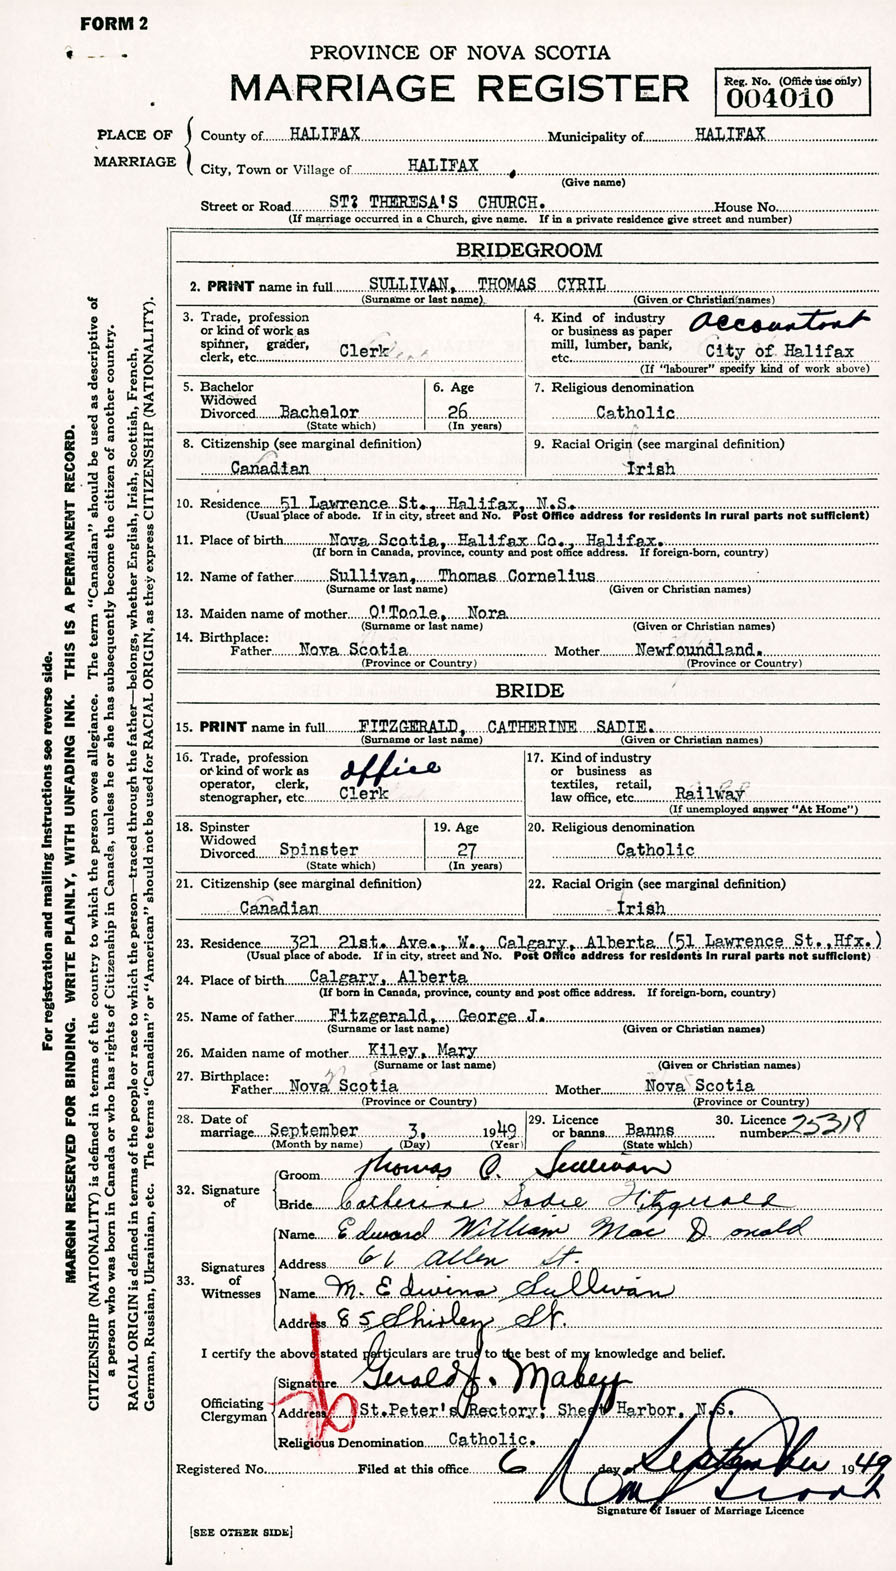 FORM 2
PROVINCE OF NOVA SCOTIA
MARRIAGE REGISTER
Reg. No. (Office use only)
004010
PLACE OF MARRIAGE
County of HALIFAX Municipality of HALIFAX
City, Town or Village of HALIFAX
(Give name)
Street or Road ST? THERESA'S CHURCH. House No.
(If marriage occurred in a Church, give name. If in a private residence give street and number)
BRIDEGROOM
2. PRINT name in full SULLIVAN, THOMAS CYRIL
(Surname or last name) (Given or Christian names)
3. Trade, profession or kind of work as spinner, grader, clerk, etc. Clerk
4. Kind of industry or business as paper mill, lumber, bank, etc. accountant City of Halifax
(If "labourer" specify kind of work above)
5. Bachelor Widowed Divorced Bachelor
(State which)
6. Age 26
(In years)
7. Religious denomination
Catholic
8. Citizenship (see marginal definition)
Canadian
9. Racial Origin (see marginal definition)
Irish
10. Residence 51 Lawrence St., Halifax, N.S.
(Usual place of abode. If in city, street and No. Post Office address for residents in rural parts not sufficient)
11. Place of birth Nova Scotia, Halifax Co., Halifax.
(If born in Canada, province, county and post office address. If foreign-born, country)
12. Name of father Sullivan, Thomas Cornelius
(Surname or last name) (Given or Christian names)
13. Maiden name of mother O'Toole, Nora
(Surname or last name) (Given or Christian names)
14. Birthplace:
Father Nova Scotia Mother Newfoundland.
(Province or Country) (Province or Country)
BRIDE
15. PRINT name in full FITZGERALD, CATHERINE SADIE.
(Surname or last name) (Given or Christian names)
16. Trade, profession or kind of work as operator, clerk, stenographer, etc. office Clerk
17. Kind of industry or business as textiles, retail, law office, etc. Railway
(If unemployed answer "At Home")
18. Spinster Widowed Divorced Spinster
(State which)
19. Age 27
(In years)
20. Religious denomination
Catholic
21. Citizenship (see marginal definition)
Canadian
22. Racial Origin (see marginal definition)
Irish
23. Residence 321 21st. Ave., W., Calgary, Alberta (51 Lawrence St.,Hfx.)
(Usual place of abode. If in city, street and No. Post Office address for residents in rural parts not sufficient)
24. Place of birth Calgary, Alberta
(If born in Canada, province, county and post office address. If foreign-born, country)
25. Name of father Fitzgerald, George J.
(Surname or last name) (Given or Christian names)
26. Maiden name of mother Kiley, Mary
(Surname or last name) (Given or Christian names)
27. Birthplace:
Father Nova Scotia Mother Nova Scotia
(Province or Country) (Province or Country)
28. Date of marriage September 3, 1949
(Month by name) (Day) (Year)
29. Licence or banns Banns
(State which)
30. Licence number 25318
32. Signature of
Groom Thomas C. Sullivan
Bride Catherine Sadie Fitzgerald
33. Signatures of Witnesses
Name Edward William Mac Donald
Address 61 Allen St.
Name M. Edwina Sullivan
Address 85 Shirley St.
I certify the above stated particulars are true to the best of my knowledge and belief.
Officiating Clergyman
Signature Gerald J. Mabey
Address St.Peter's Rectory, Sheet Harbor, N.S.
Religious Denomination Catholic.
Registered No. Filed at this office 6 day of September 1949
Signature of Issuer of Marriage Licence
[SEE OTHER SIDE]
For registration and mailing instructions see reverse side.
MARGIN RESERVED FOR BINDING. WRITE PLAINLY, WITH UNFADING INK. THIS IS A PERMANENT RECORD.
CITIZENSHIP (NATIONALITY) is defined in terms of the country to which the person owes allegiance. The term "Canadian" should be used as descriptive of
a person who was born in Canada or who has rights of Citizenship in Canada, unless he or she has subsequently become the citizen of another country.
RACIAL ORIGIN is defined in terms of the people or race to which the person—traced through the father—belongs, whether English, Irish, Scottish, French,
German, Russian, Ukrainian, etc. The terms "Canadian" or "American" should not be used for RACIAL ORIGIN, as they express CITIZENSHIP (NATIONALITY).